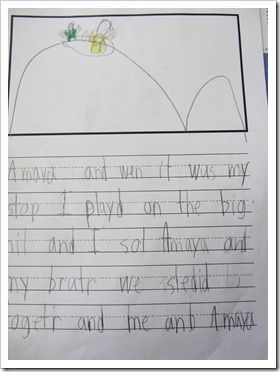 Amaya and wen it wus my
stop I playd on the big
hil and I sal Amaya and
my brutr we sledid
togetr and me and Amaya